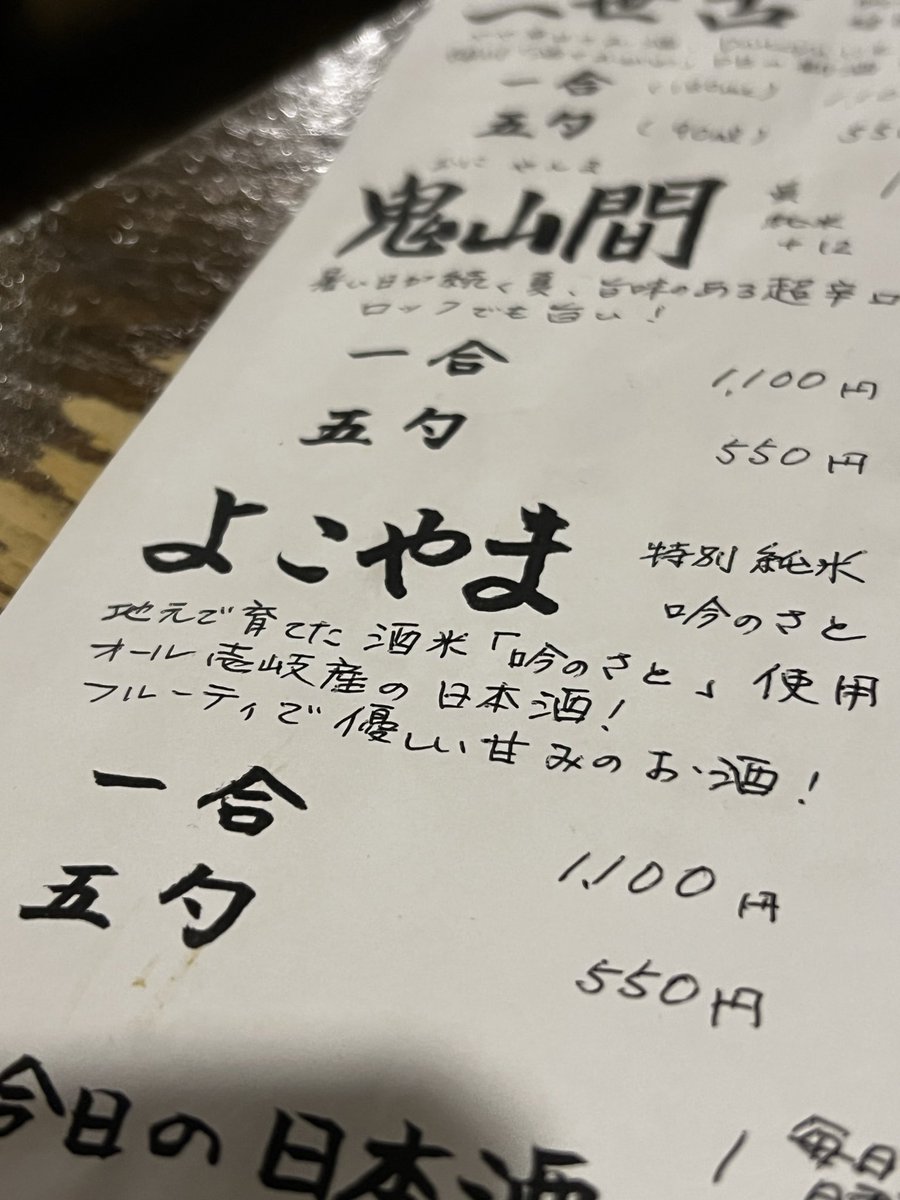 一合
五勺
鬼山間
純米
+12
暑い日が続く夏、旨味のある超辛口
ロックでも旨い!
一合 1,100円
五勺 550円
よこやま 特別純米
吟のさと
地元で育てた酒米「吟のさと」使用
オール壱岐産の日本酒!
フルーティで優しい甘みのお酒!
一合 1,100円
五勺 550円
今日の日本酒
毎日